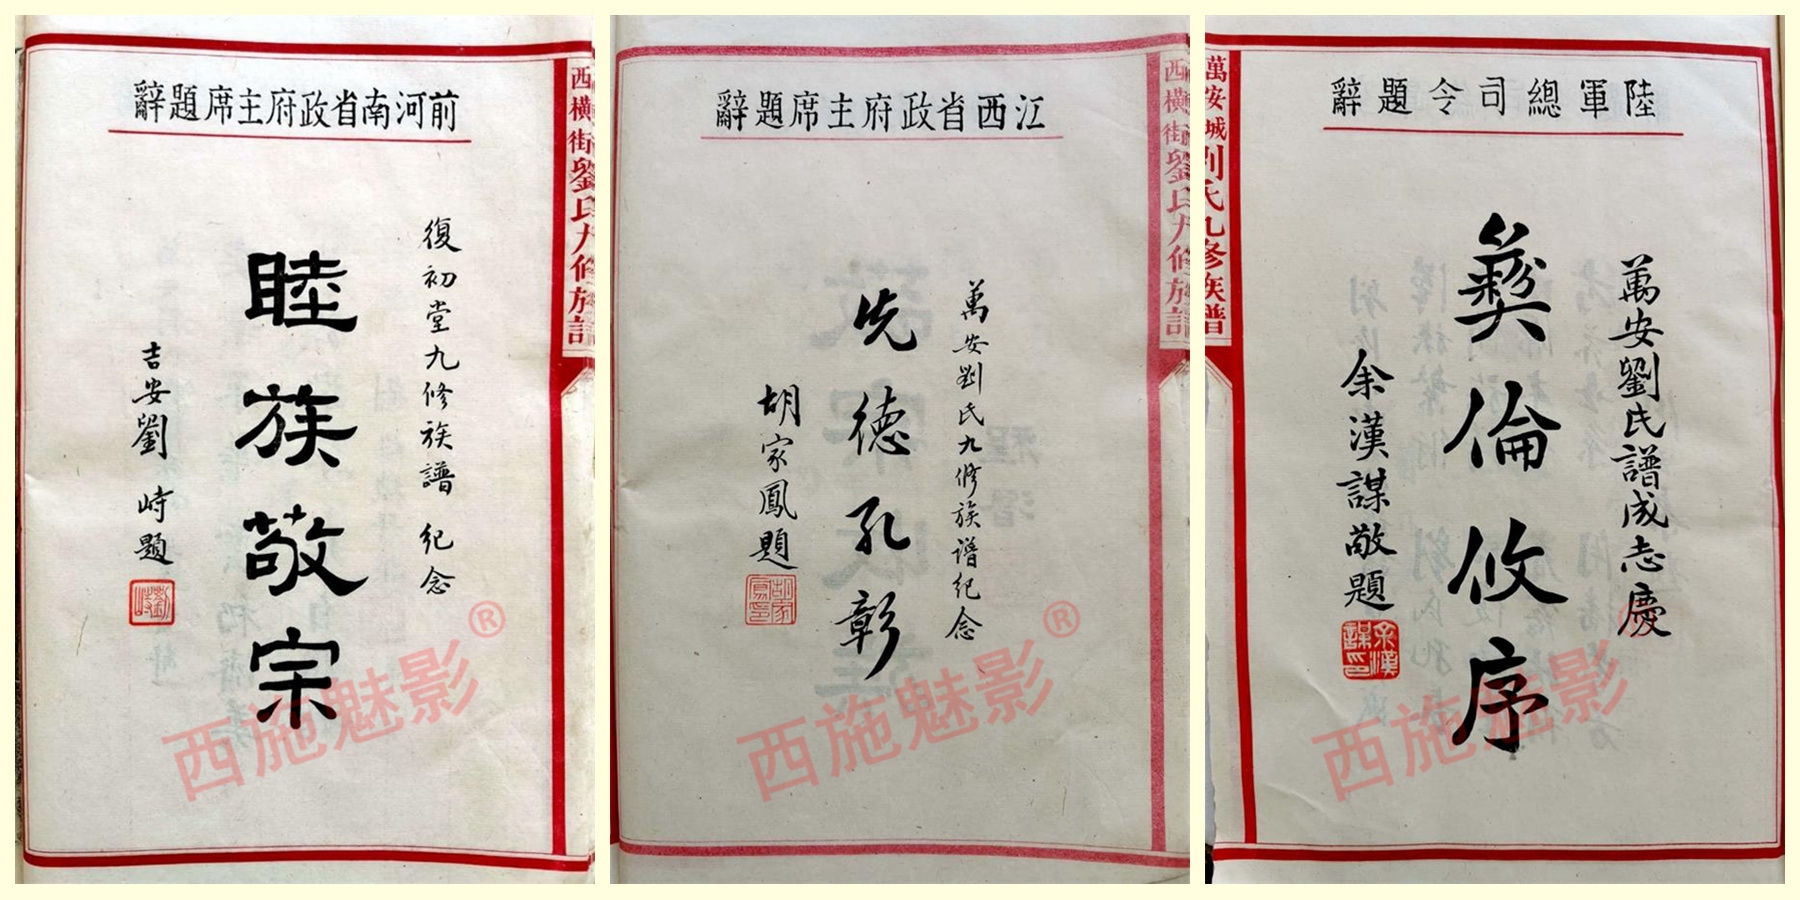 前河南省政府主席題辭
復初堂九修族譜 紀念
睦族敬宗
吉安劉峙題
劉峙
西橫街劉氏九修族譜
西施魅影®
江西省政府主席題辭
萬安劉氏九修族譜紀念
先德孔彰
胡家鳳題
胡家鳳印
西橫街劉氏九修族譜
西施魅影®
陸軍總司令題辭
萬安劉氏譜成志慶
彝倫攸序
余漢謀敬題
余漢謀印
萬安城劉氏九修族譜
西施魅影®